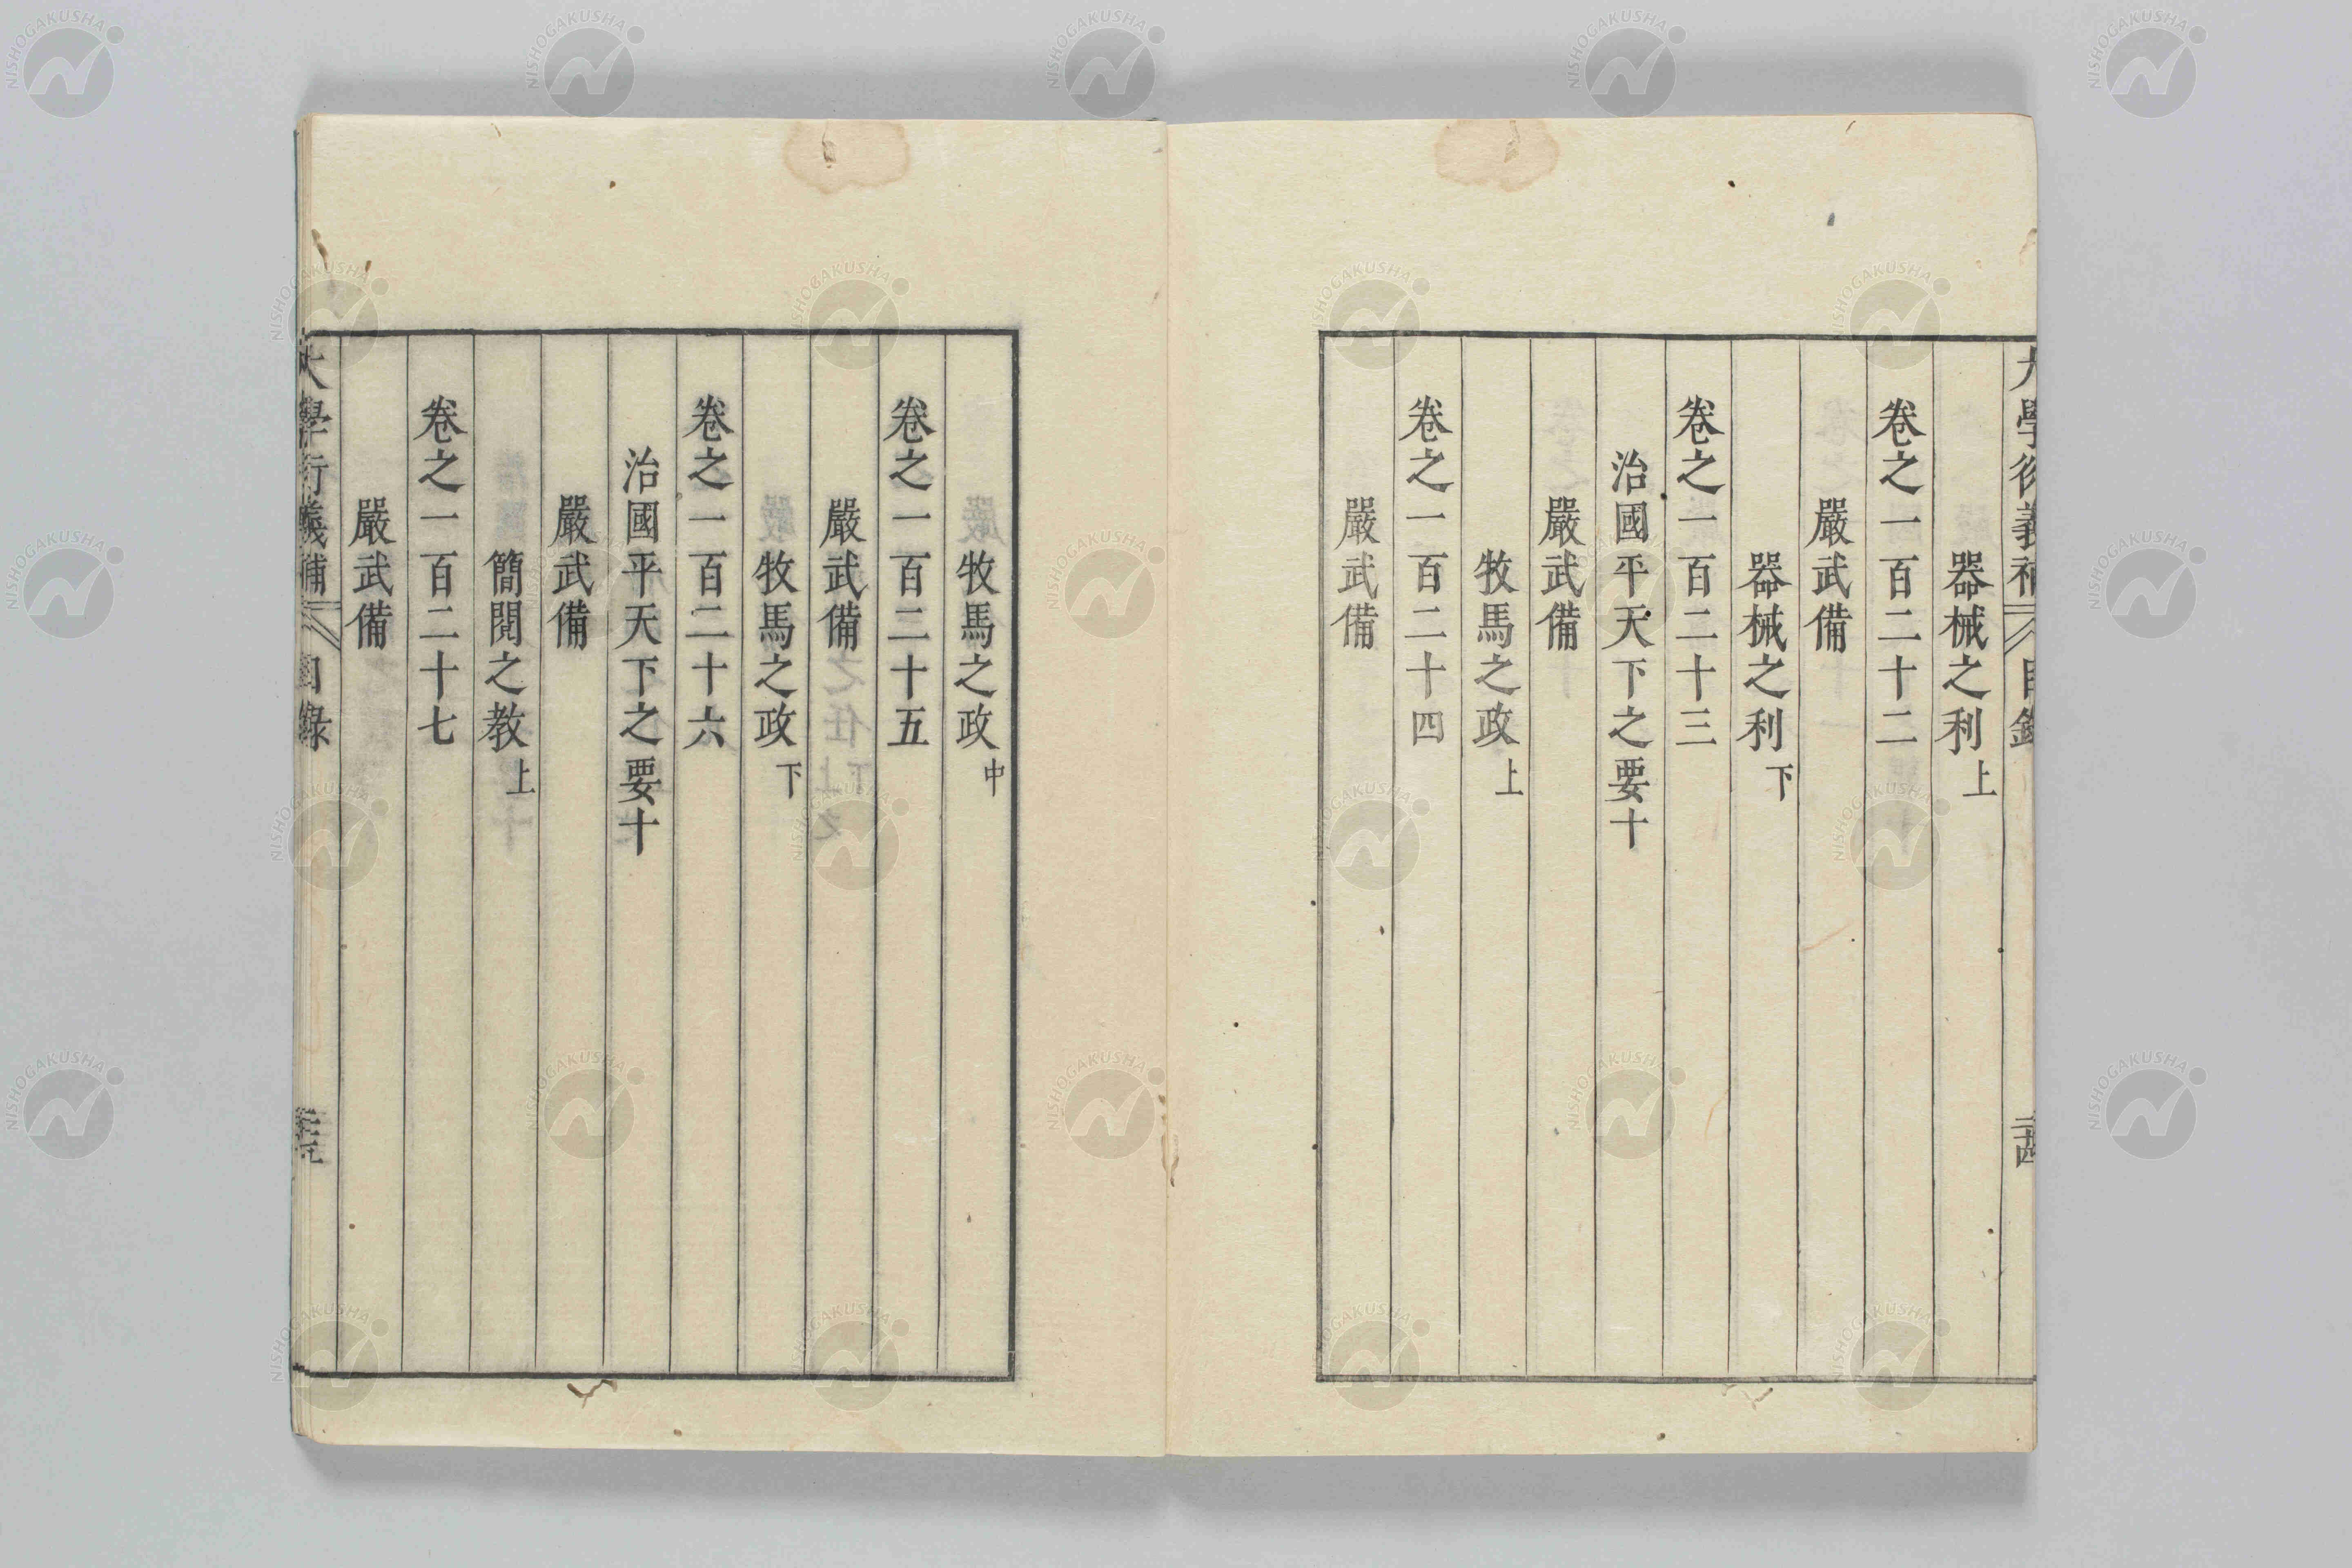 大學衍義補 目錄 二十四
器械之利上
卷之一百二十二
嚴武備
器械之利下
卷之一百二十三
治國平天下之要十
嚴武備
牧馬之政上
卷之一百二十四
嚴武備
牧馬之政中
卷之一百二十五
嚴武備
牧馬之政下
卷之一百二十六
治國平天下之要十
嚴武備
簡閱之教上
卷之一百二十七
嚴武備
大學衍義補 目錄
NISHOGAKUSHA